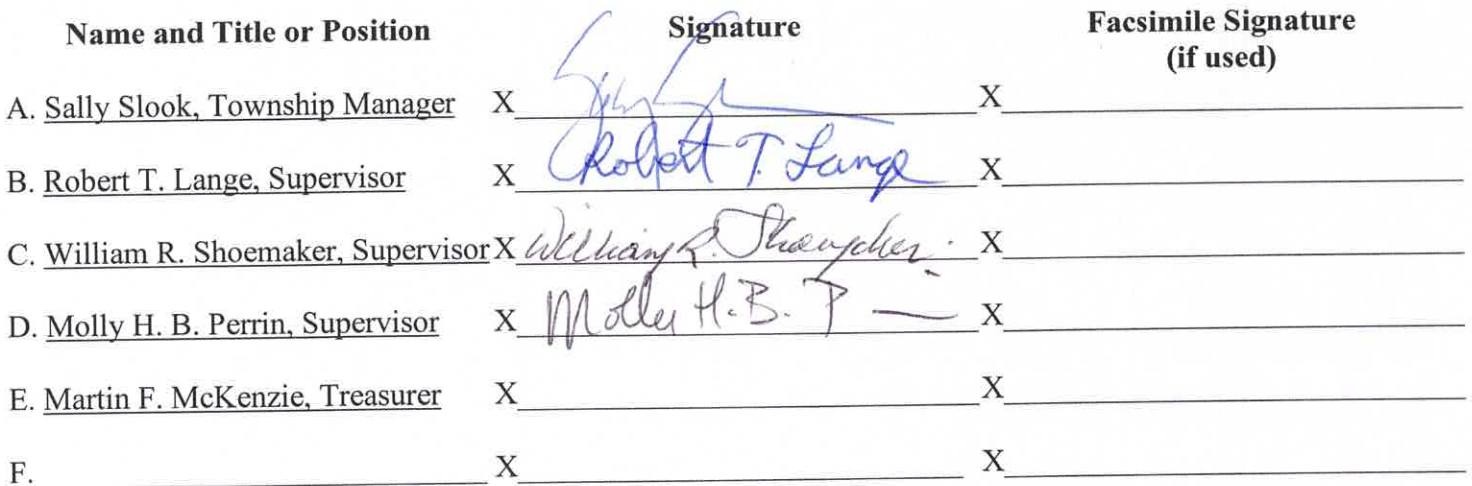 Name and Title or Position Signature Facsimile Signature
(if used)
A. Sally Slook, Township Manager X X
B. Robert T. Lange, Supervisor X Robert T. Lange X
C. William R. Shoemaker, Supervisor X William R. Shoemaker X
D. Molly H. B. Perrin, Supervisor X Molly H. B. P X
E. Martin F. McKenzie, Treasurer X X
F. X X